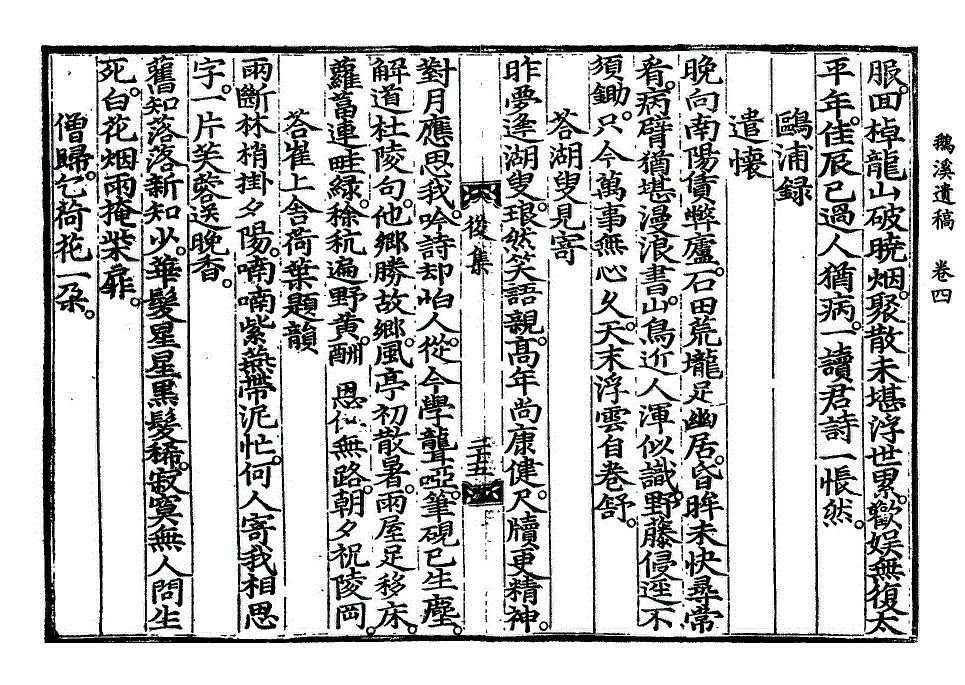 鵝溪遺稿 卷四
服。回棹龍山破曉烟。聚散未堪浮世累。歡娛無復太
平年。佳辰已過人猶病。一讀君詩一悵然。
鷗浦録
遣懷
晚向南陽債弊廬。石田荒壠足幽居。昏眸未快尋常
看。病臂猶堪漫浪書。山鳥近人渾似識。野藤侵逕不
須鋤。只今萬事無心久。天末浮雲自卷舒。
荅湖叟見寄
昨夢逢湖叟。琅然笑語親。高年尚康健。尺牘更精神。
後集 二十五
對月應思我。吟詩却怕人。從今學聾啞。筆硯已生塵。
解道杜陵句。他鄉勝故鄉。風亭初散暑。雨屋足移床。
蘿葍連畦綠。稌秔遍野黄。酬恩似無路。朝夕祝陵岡。
荅崔上舍荷葉題韻
雨斷林梢掛夕陽。喃喃紫燕帶泥忙。何人寄我相思
字。一片芙蓉送晚香。
舊知落落新知少。華髮星星黑髮稀。寂寞無人問生
死。白花烟雨掩柴扉。
僧歸。乞荷花一朶。